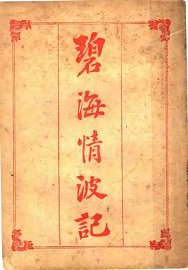 碧海情波記